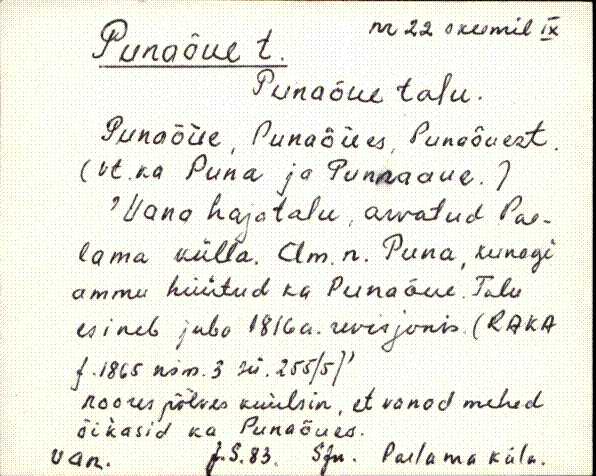 Punaõue t. nr 22 skeemil IX
Punaõue talu.
Punaõüe, Punaõües, Punaõuest.
(vt. ka Puna ja
'Vana hajatalu, arvatud Pae-
lama külla. Am. n. Puna, kunagi
ammu hüütud ka Punaõue. Talu
esineb juba 1816 a. revisjonis. (RAKA
f. 1865 nim. 3 sü. 255/5)'
noores põlves kuulsin, et vanad mehed
õikasid ka Punaõues.
Van. J.S. 83. Sjn. Paelama küla.